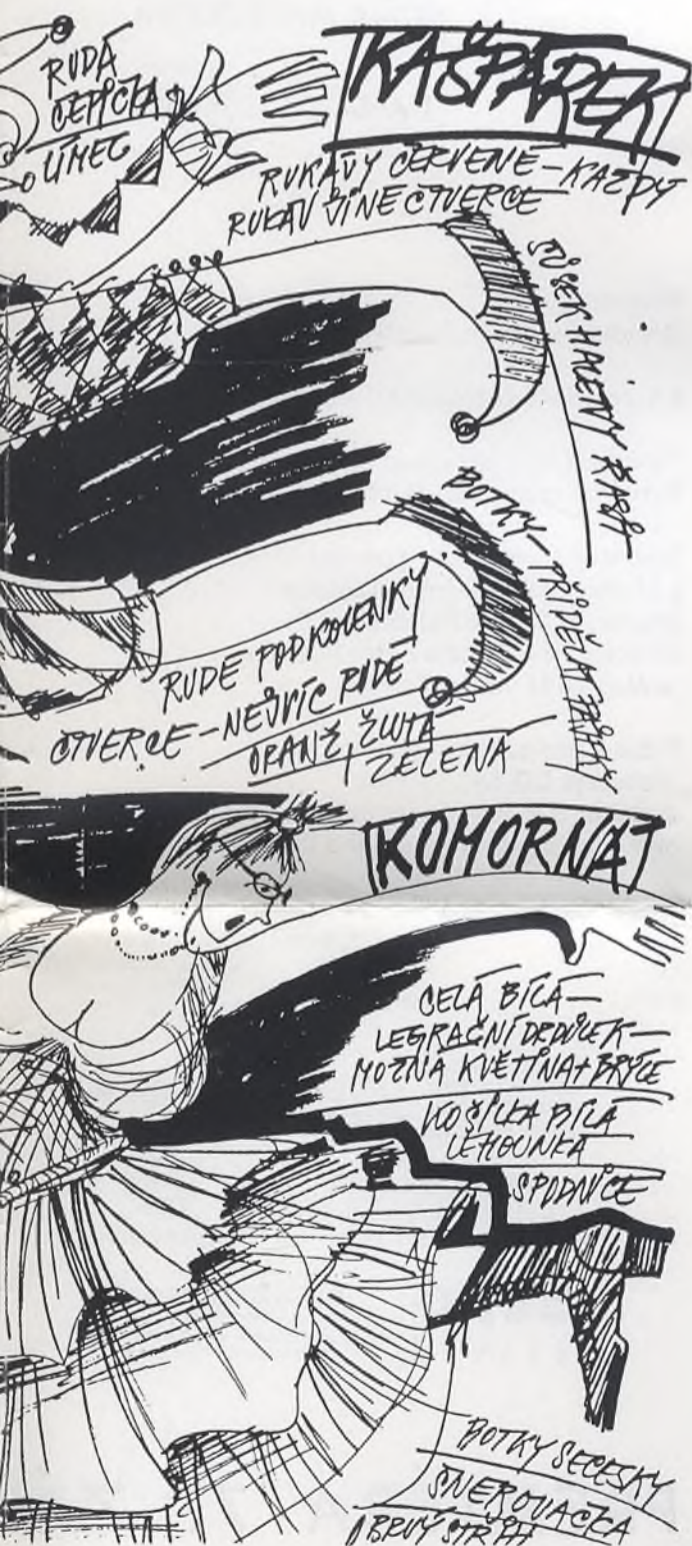 KAŠPÁREK
RUDÁ
ČEPIČKA
LÍMEC
RUKÁVY ČERVENÉ – KAŽDÝ
RUKÁV JINÉ ČTVERCE
BOTKY – PŘIDĚLAT ŠPIČKY
RUDÉ PODKOLENKY
ČTVERCE – NEJVÍC RUDÉ
ORANŽ, ŽLUTÁ
ZELENÁ
KOMORNÁ
CELÁ BÍLÁ –
LEGRAČNÍ DRDŮLEK –
MOŽNÁ KVĚTINA + BRÝLE
KOŠILKA BÍLÁ
LEHOUNKÁ
SPODNICE
BOTKY SECESKY
ŠNEROVAČKA